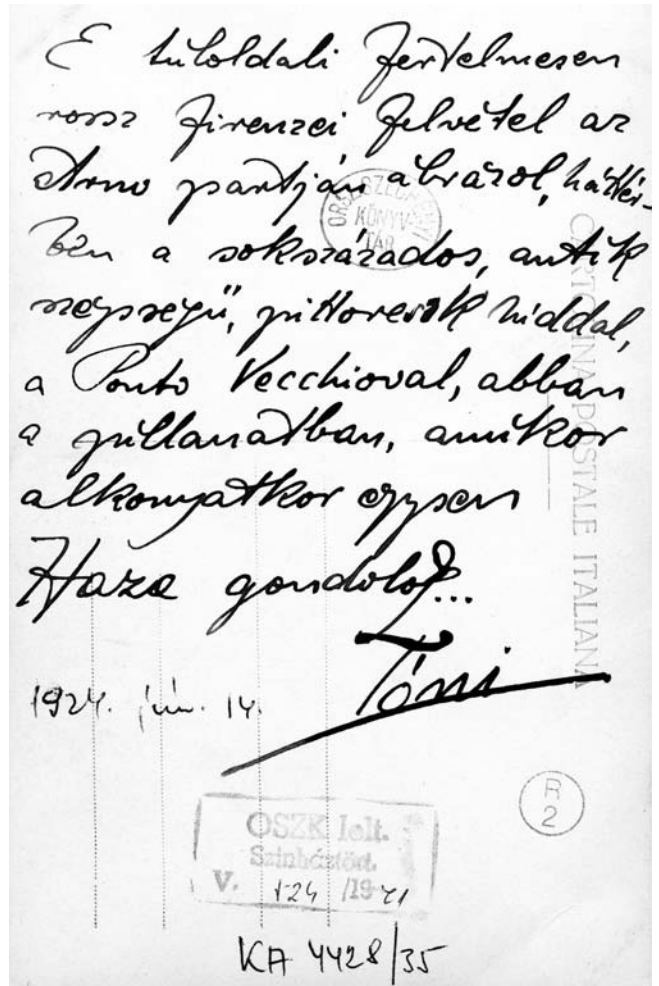 E túloldali förtelmesen
rossz firenzei felvétel az
Arno partján ábrázol, hátter-
ben a sokszázados, antik
szépségű, pittoreszk híddal,
a Ponto Vecchioval, abban
a pillanatban, amikor
alkonyatkor éppen
Haza gondolok...
Tóni
1924. jún. 14.
ORSZ. SZÉCHÉNYI
KÖNYV-
TÁR
CARTOLINA POSTALE ITALIANA
R
2
OSZK lelt.
Színháztört.
V. 124 /1971
KA 4428/35